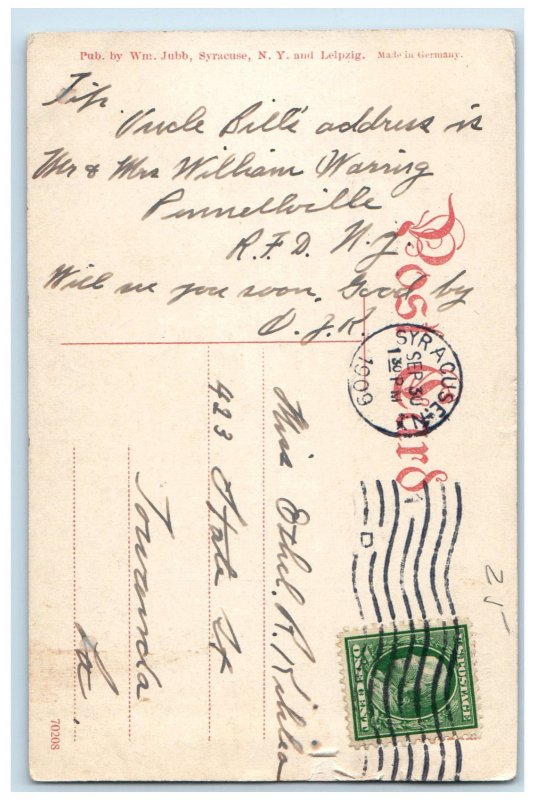 Pub. by Wm. Jubb, Syracuse, N. Y. and Leipzig. Made in Germany.
Uncle Bill's address is
Mr & Mrs William Warring
Pennellville
R.F.D. N.Y.
Will see you soon. Good by
O.J.R.
Post Card
SYRACUSE, N.Y.
SEP 30
1 30 P M
1909
Miss Ethel R.
423 State St
Towanda
Pa.
D
U.S. POSTAGE
ONE CENT
25
70208